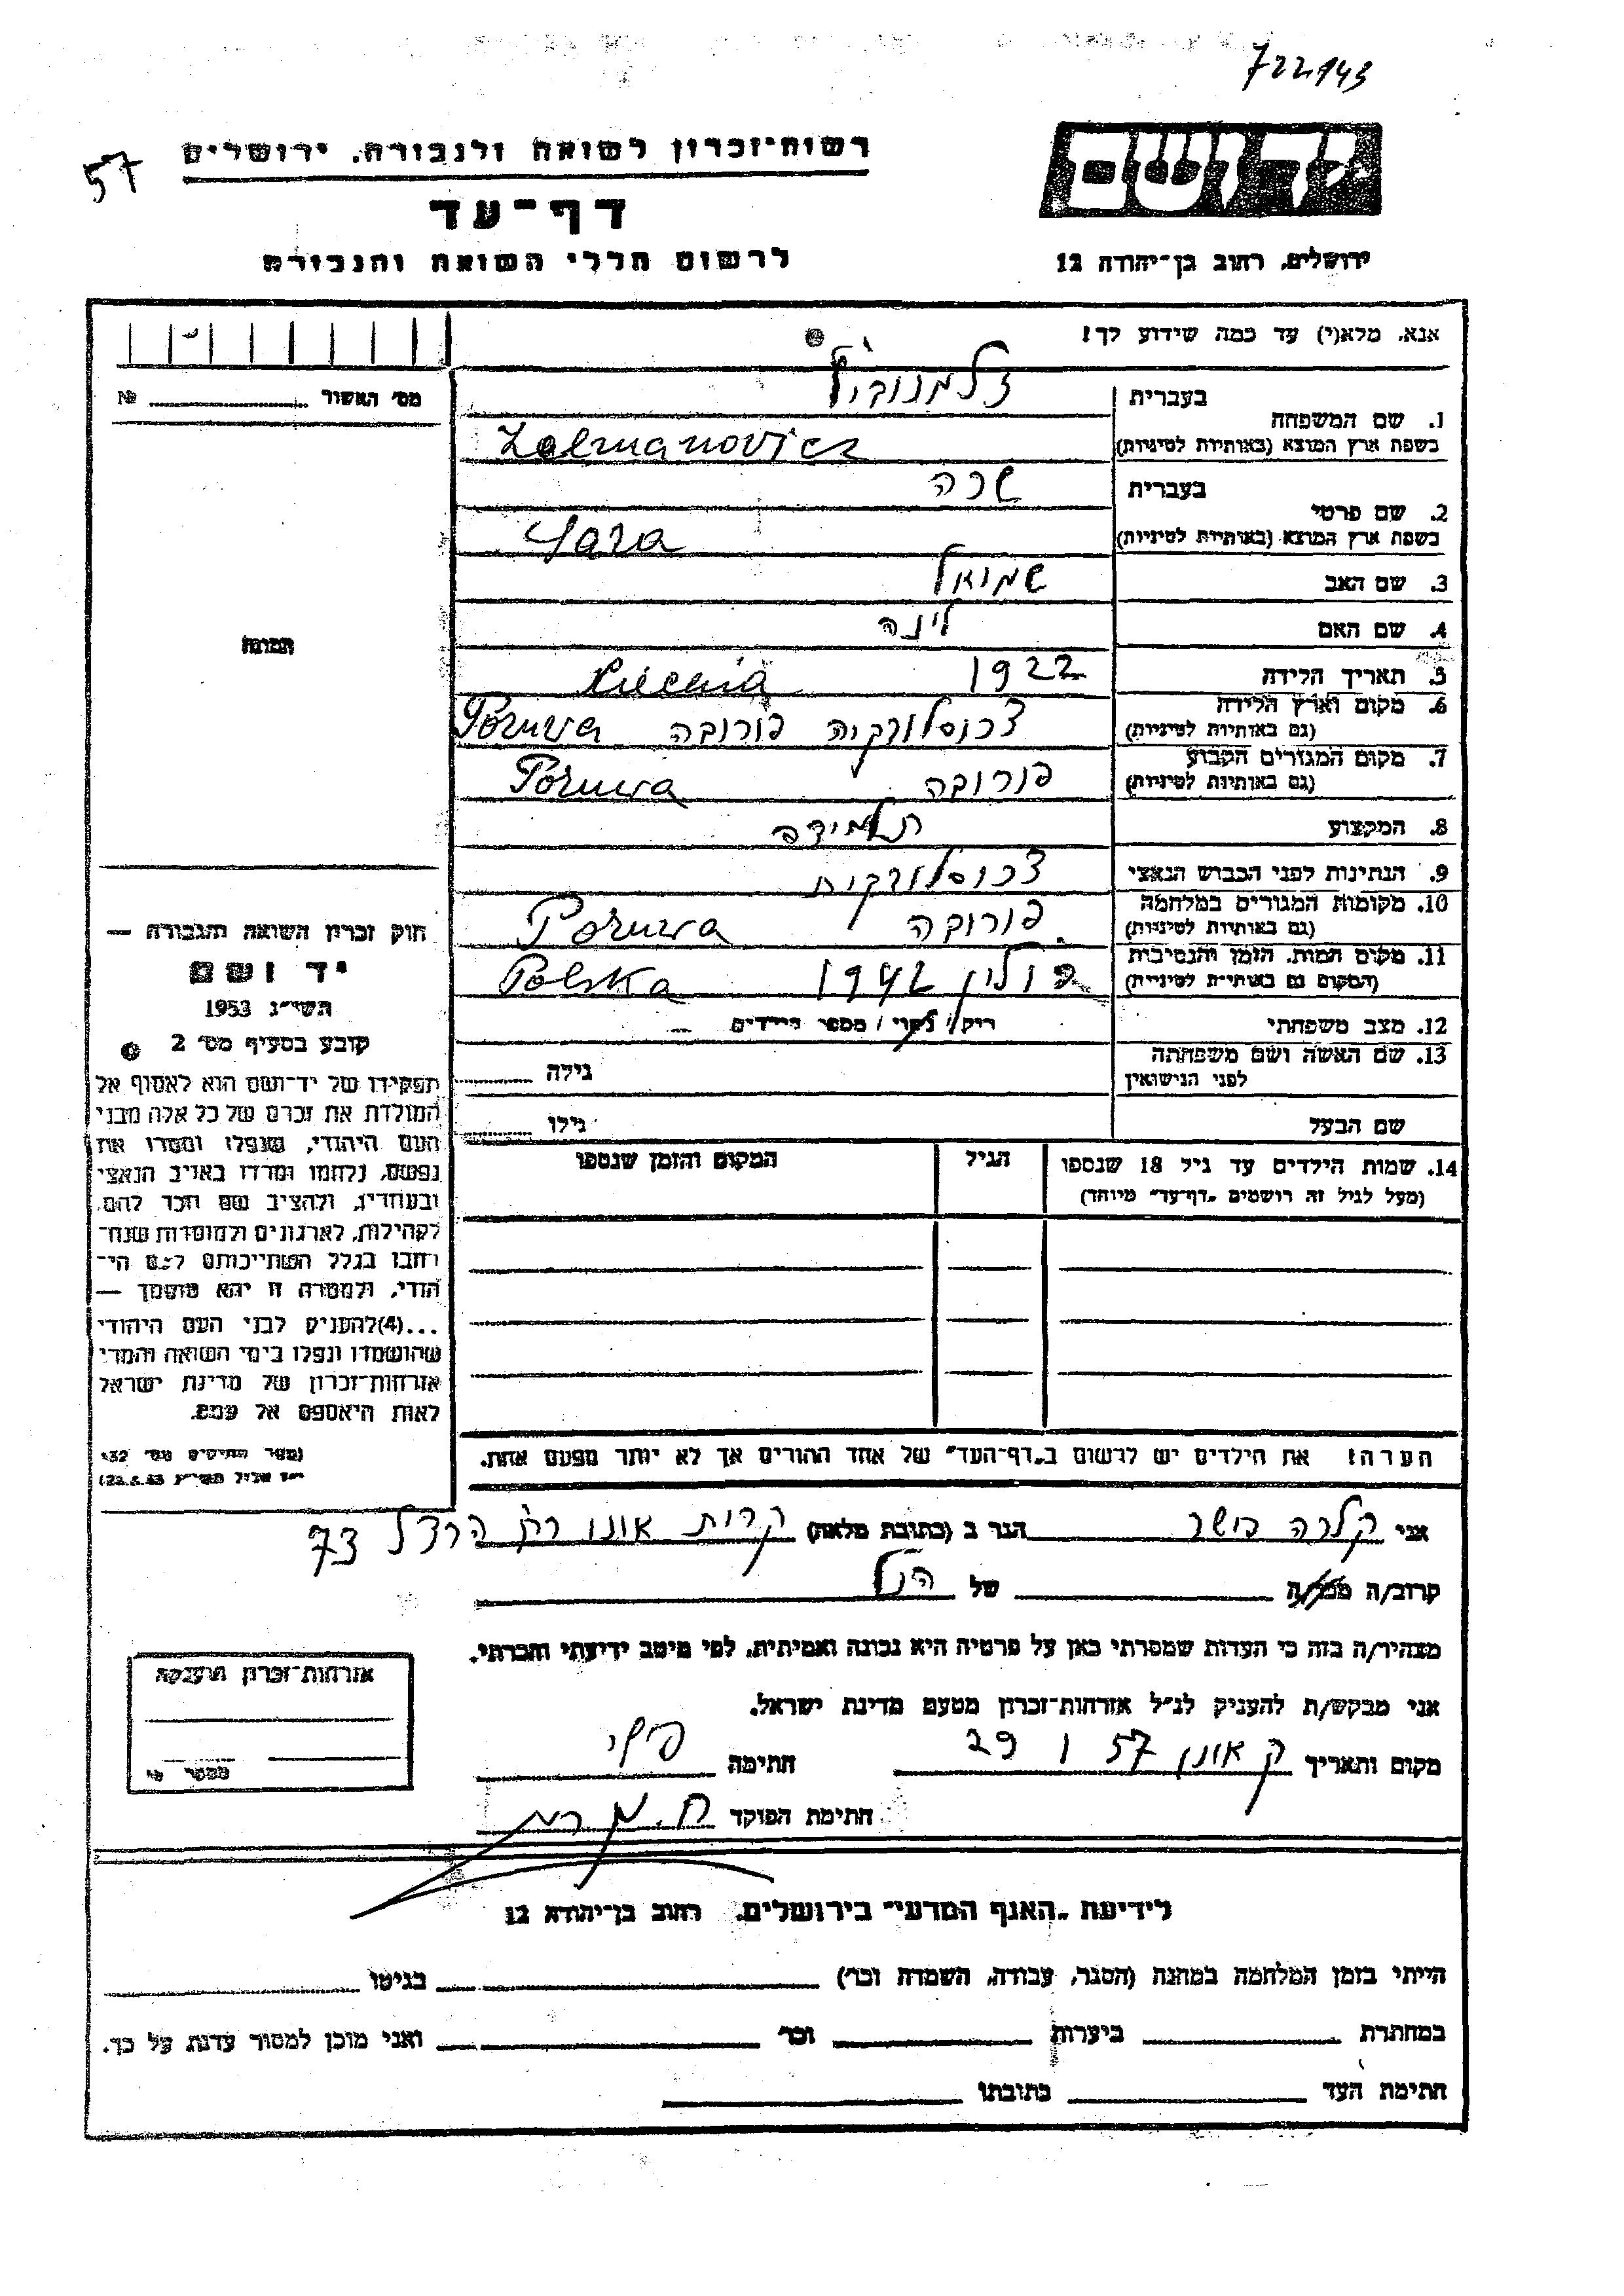 722143
57
רשות־זכרון לשואה ולגבורה, ירושלים
יד ושם
דף־עד
לרשום חללי השואה והגבורה
ירושלים, רחוב בן־יהודה 12
אנא, מלא(י) עד כמה שידוע לך!
מס' האשור № 
1. שם המשפחה
בעברית זלמנוביץ'
בשפת ארץ המוצא (באותיות לטיניות) Zalmanovicz
2. שם פרטי
בעברית שרה
בשפת ארץ המוצא (באותיות לטיניות) Sara
3. שם האב שמואל
4. שם האם לינה
תמונה
5. תאריך הלידה 1922
6. מקום וארץ הלידה (גם באותיות לטיניות) צכוסלובקיה פורובה Poruwa
7. מקום המגורים הקבוע (גם באותיות לטיניות) פורובה Poruwa
8. המקצוע תלמידה
9. הנתינות לפני הכבוש הנאצי צכוסלובקית
10. מקומות המגורים במלחמה (גם באותיות לטיניות) פורובה Poruwa
11. מקום המות, הזמן והנסיבות (המקום גם באותיות לטיניות) פולין 1942 Polska
12. מצב משפחתי רווק/ נשוי / מספר הילדים
13. שם האשה ושם משפחתה לפני הנישואין גילה
שם הבעל גילו
14. שמות הילדים עד גיל 18 שנספו הגיל המקום והזמן שנספו
(מעל לגיל זה רושמים "דף־עד" מיוחד)
חוק זכרון השואה והגבורה —
יד ושם
תשי"ג 1953
קובע בסעיף מס' 2
תפקידו של יד־ושם הוא לאסוף אל
המולדת את זכרם של כל אלה מבני
העם היהודי, שנפלו ומסרו את
נפשם, נלחמו ומרדו באויב הנאצי
ובעוזריו, ולהציב שם וזכר להם,
לקהילות, לארגונים ולמוסדות שנח־
רבו בגלל השתייכותם לעם הי־
הודי, ולמטרה זו יהא מוסמך —
...(4)להעניק לבני העם היהודי
שהושמדו ונפלו בימי השואה והמרי
אזרחות־זכרון של מדינת ישראל
לאות היאספם אל עמם.
(ספר החוקים מס' 132,
הערה! את הילדים יש לרשום ב"דף־העד" של אחד ההורים אך לא יותר מפעם אחת.
אני קלרה פישר הגר ב (כתובת מלאה) קרית אונו רח' הרצל 73
קרוב/ה מכר/ה של הנ"ל
מצהיר/ה בזה כי העדות שמסרתי כאן על פרטיה היא נכונה ואמיתית, לפי מיטב ידיעתי והכרתי.
אני מבקש/ת להעניק לנ"ל אזרחות־זכרון מטעם מדינת ישראל.
מקום ותאריך ק אונו 29 1 57 חתימה
חתימת הפוקד
אזרחות־זכרון הוענקה
לידיעת "האגף המדעי" בירושלים, רחוב בן־יהודה 12
הייתי בזמן המלחמה במחנה (הסגר, עבודה, השמדה וכו') בגיטו
במחתרת ביערות וכו' ואני מוכן למסור עדות על כך.
חתימת העד כתובתו